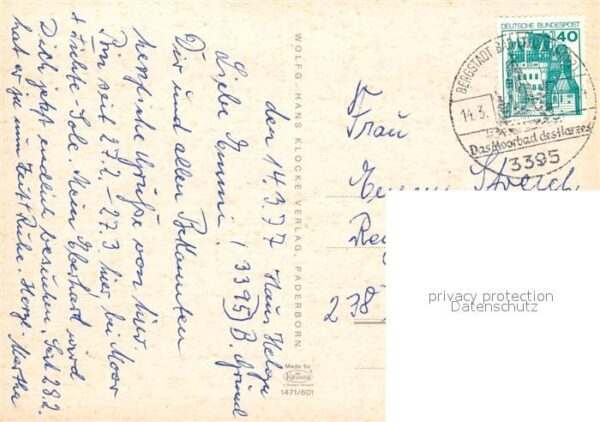 den 14.3.77 Haus Helga
Liebe Emmi! (3395) B. Grund
Dir und allen Bekannten
herzliche Grüße von hier
Bin seit 27.2. - 27.3 hier, bei Moor
+ Fichte-Sole. Mein Eberhard wird
Dich jetzt endlich besuchen. Seit 28.2.
hat er ja nun Zeit + Ruhe. Herzl. Martha
WOLFG. HANS KLOCKE VERLAG, PADERBORN
Made by
KRÜGER
1471/601
DEUTSCHE BUNDESPOST
40
BERGSTADT
14.3.
Das Moorbad des Harzes
3395
Frau
Emmi
238
privacy protection
Datenschutz